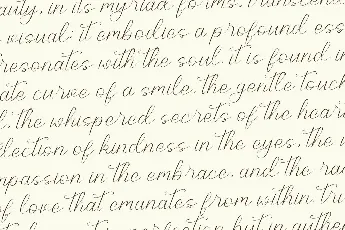 auty, in its myriad forms, transcend
visual. it embodies a profound ess
resonates with the soul. it is found in
ate curve of a smile, the gentle touch
l. the whispered secrets of the hear
lection of kindness in the eyes, the w
mpassion in the embrace, and the rad
of love that emanates from within. tru
perfection but in authen